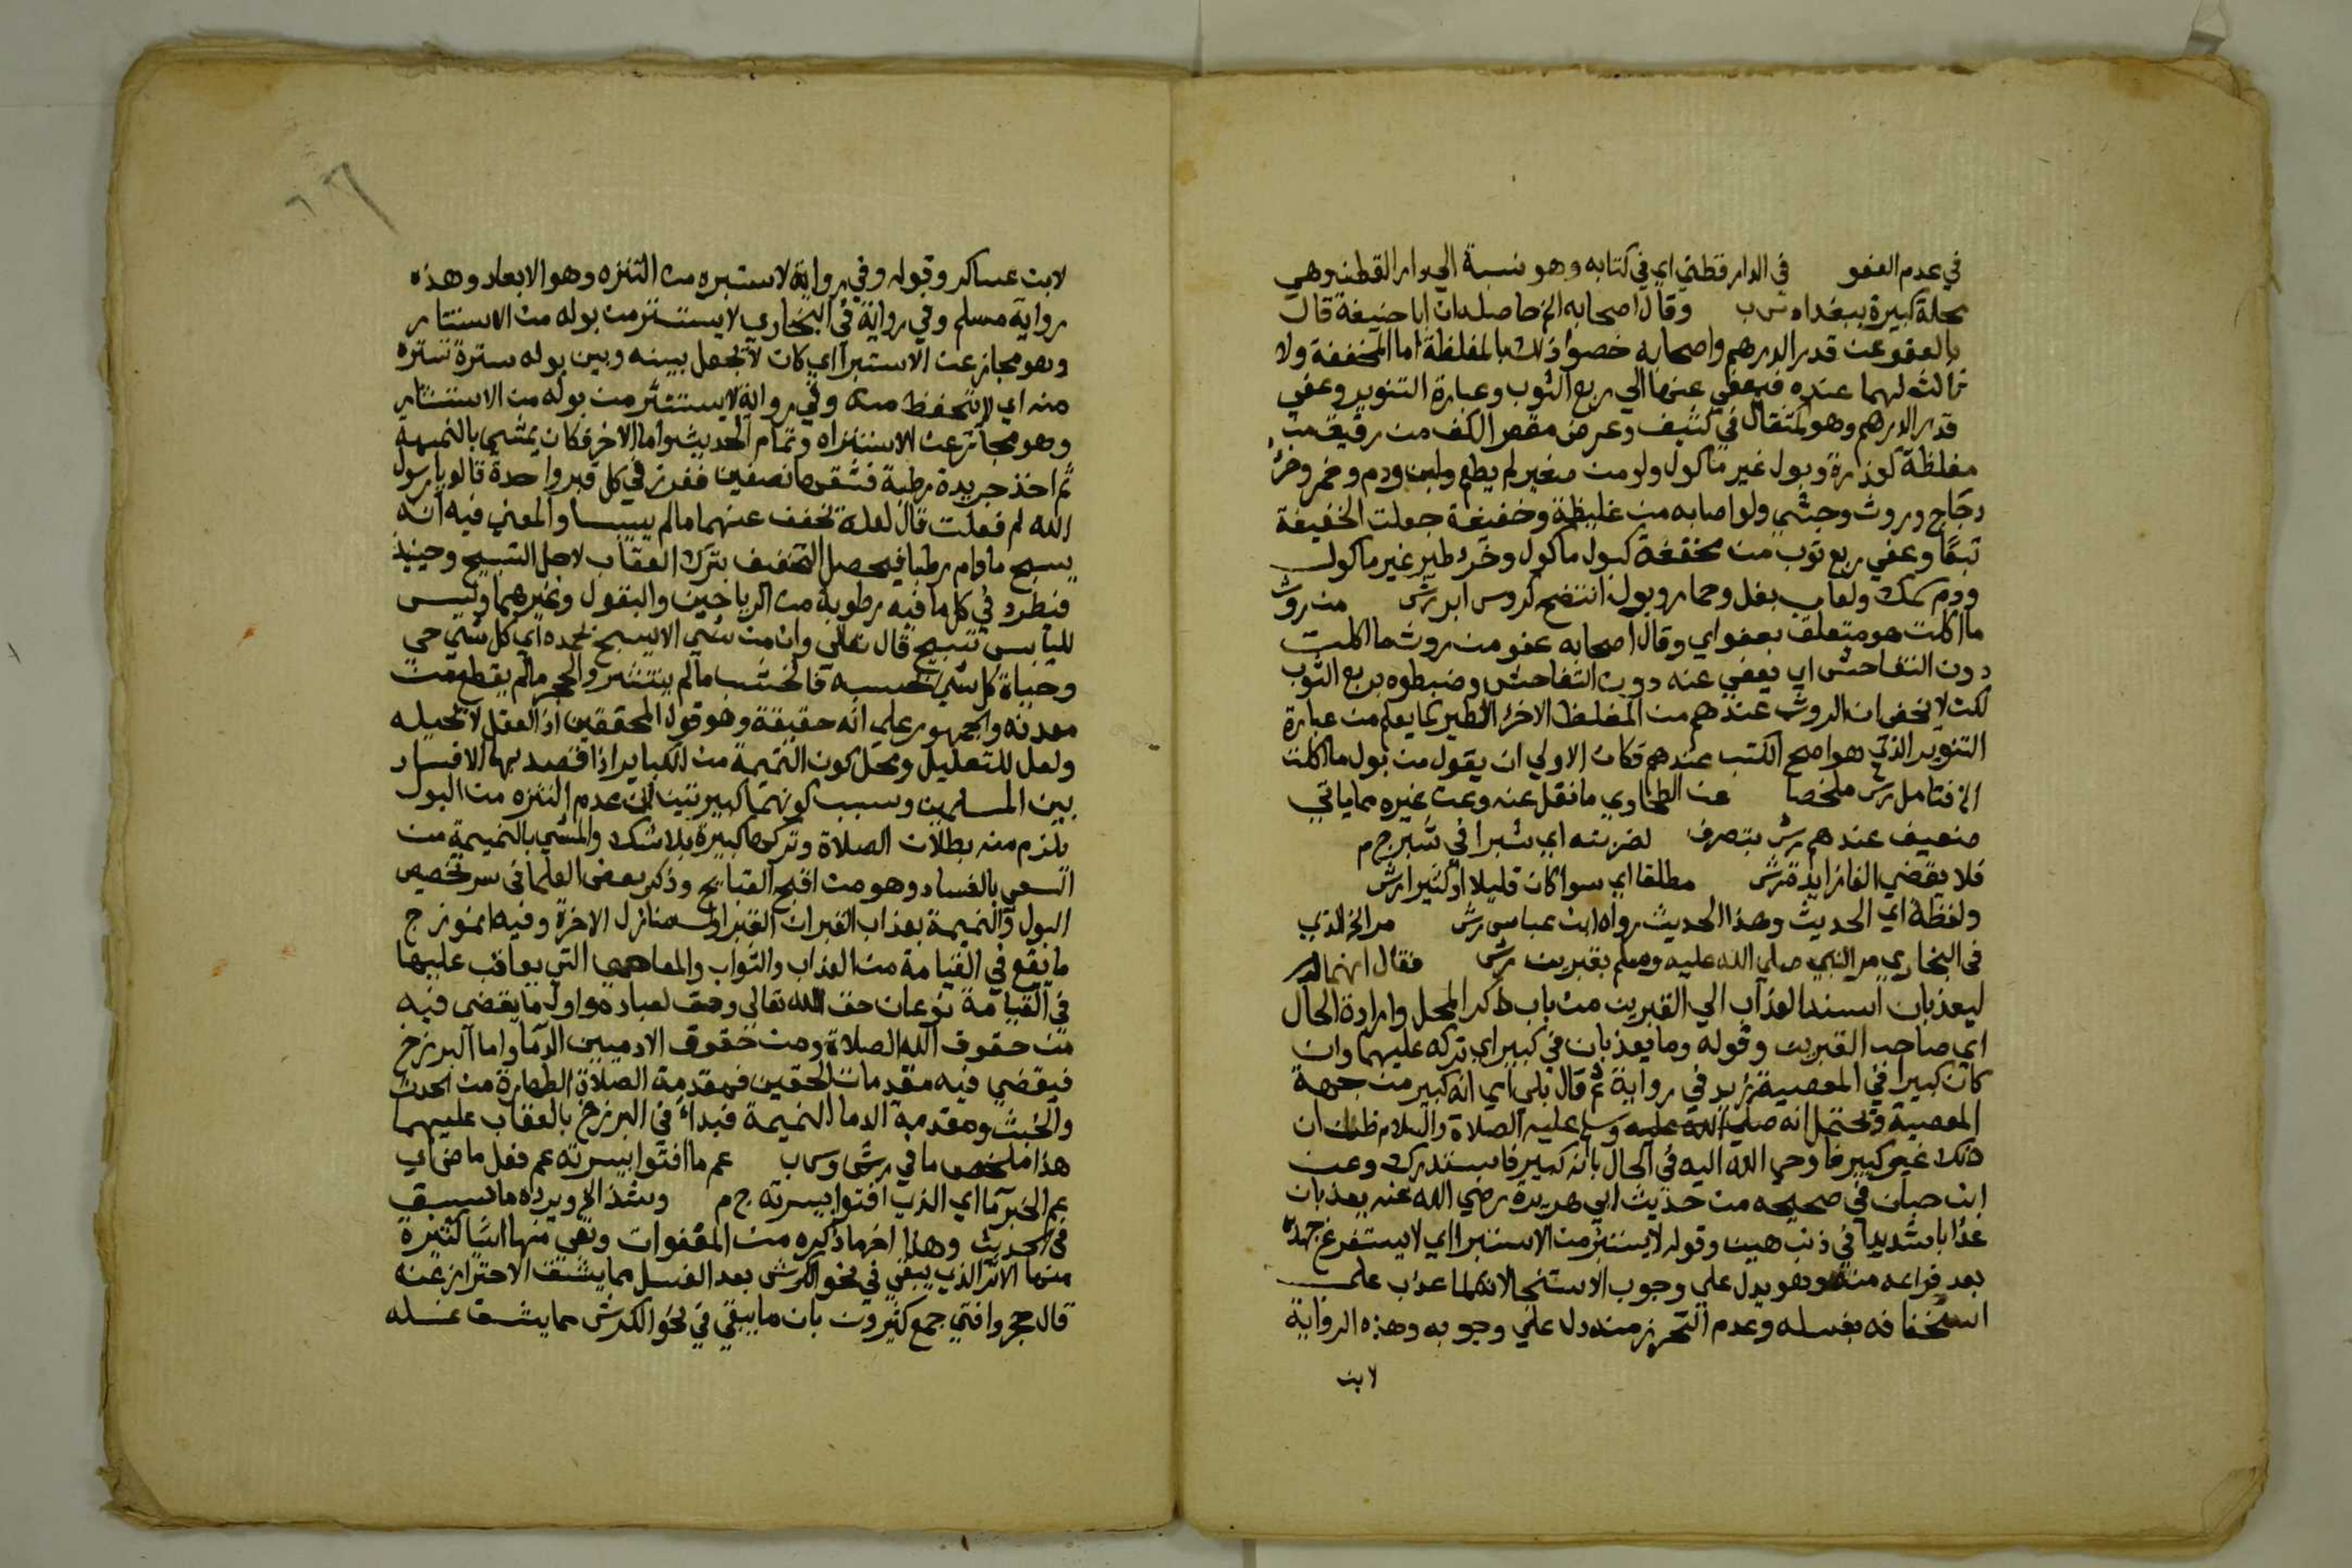 في عدم العفو في الدار قطني اي في كتابه وهو نسبة الي دار القطن وهي
محلة كبيرة ببغداد ش ب وقال اصحابه الخ حاصله ان ابا حنيفة قال
بالعفو عن قدر الدرهم واصحابه خصوا ذلك بالمغلظة اما المخففة ولا
ثالث لهما عنده فيعفي عنها الي ربع الثوب وعبارة التنوير وعفي
قدر الدرهم وهو مثقال في كثيف وعرض مقعر الكف من رقيق من
مغلظة كعذرة وبول غير ماكول ولو من صغير لم يطعم ودم وخمر وخرء
دجاج وروث وحثي ولو اصابه من غليظة وخفيفة جعلت الخفيفة
تبعا وعفي ربع ثوب من مخففة كبول ماكول وخرء طير غير ماكول
ودم سمك ولعاب بغل وحمار وبول انتضح كروس ابر رش من روث
ما اكلت هو متعلق بعفو اي وقال اصحابه عفو من روث ما اكلت
دون التفاحش اي يعفي عنه دون التفاحش وضبطوه بربع الثوب
لكن لا يخفي ان الروث عندهم من المغلظ الاخرء الطير كما يعلم من عبارة
التنوير الذي هو اصح الكتب عندهم فكان الاولي ان يقول من بول ما اكلت
الخ فتامل رش ملخصا عن الطحاوي ما نقل عنه وعن غيره مما ياتي
ضعيف عندهم رش بتصرف لضربته اي شبرا في شبر ج م
فلا يقضي الفا زايدة رش مطلقا اي سوا كان قليلا او كثيرا رش
ولفظه اي الحديث وهذا الحديث رواه ابن عباس رش مر الخ الذي
في البخاري مر النبي صلي الله عليه وسلم بقبرين رش فقال انهما
ليعذبان اسند العذاب الي القبرين من باب ذكر المحل وارادة الحال
اي صاحب القبرين وقوله وما يعذبان في كبير اي تركه عليهما وان
كان كبيرا في المعصية زيد في رواية ثم قال بلي اي انه كبير من جهة
المعصية ويحتمل انه صلي الله عليه وسلم عليه الصلاة والسلام ظن ان
ذلك غير كبير فاوحي الله اليه في الحال بانه كبير فاستدرك وعن
ابن حبان في صحيحه من حديث ابي هريرة رضي الله عنه يعذبان
عذابا شديدا في ذنب هين وقوله لا يستبرئ من الاستبرا اي لا يستفرغ جهده
بعد فراغه منه وهو يدل علي وجوب الاستنجا لانه لما عذب علي
استخفافه بغسله وعدم التحرز منه دل علي وجوبه وهذه الرواية
لابن
لابن عساكر وقوله وفي رواية لا يستبره من التنزه وهو الابعاد وهذه
رواية مسلم وفي رواية في البخاري لا يستتر من بوله من الاستتار
وهو مجاز عن الاستبرا اي كان لا يجعل بينه وبين بوله سترة تستره
منه اي لا يتحفظ منه وفي رواية لا يستنثر من بوله من الاستنثار
وهو مجاز عن الاستنزاه وتمام الحديث واما الاخر فكان يمشي بالنميمة
ثم اخذ جريدة رطبة فشقها نصفين فغرز في كل قبر واحدة قالوا يارسول
الله لم فعلت قال لعله يخفف عنهما ما لم ييبسا والمعني فيه انه
يسبح ما دام رطبا فيحصل التخفيف بترك العقاب لاجل التسبيح وحينيذ
فيطرد في كل ما فيه رطوبة من الرياحين والبقول وغيرهما وليس
لليابس تسبيح قال تعالي وان من شي الا يسبح بحمده اي كل شي حي
وحياة كل شي بحسبه فالخشب ما لم ينتثر والحجر ما لم يقطع من
معدنه والجمهور علي انه حقيقة وهو قول المحققين اذ العقل لا يحيله
ولعل للتعليل ومحل كون النميمة من الكباير اذا قصد بها الافساد
بين المسلمين وسبب كونهما كبيرتين ان عدم التنزه من البول
يلزم منه بطلان الصلاة وتركها كبيرة بلا شك والمشي بالنميمة من
السعي بالفساد وهو من اقبح القبايح وذكر بعض العلما في سر تخصيص
البول والنميمة بعذاب القبر ان القبر اول منازل الاخرة وفيه انموزج
ما يقع في القيامة من العذاب والثواب والمعاصي التي يعاقب عليها
في القيامة نوعان حق الله تعالي وحق لعباده واول ما يقضي فيه
من حقوق الله الصلاة ومن حقوق الادميين الدما واما البرزخ
فيقضي فيه مقدمات الحقين فمقدمة الصلاة الطهارة من الحدث
والخبث ومقدمة الدما النميمة فبداء في البرزخ بالعقاب عليهما
هذا ملخص ما في رش وس ب عم ما افتوا بيسرته عم فعل ماض اي
عم الخبر ما اي الذي افتوا بيسرته ج م وشذ الخ ويرده ما سبق
في الحديث وهذا اخر ما ذكره من المعفوات وبقي منها اشيا كثيرة
منها الاثر الذي يبقي في نحو الكرش بعد الغسل مما يشق الاحتراز عنه
قال حجر وافتي جمع كثيرون بان ما يبقي في نحو الكرش مما يشق غسله